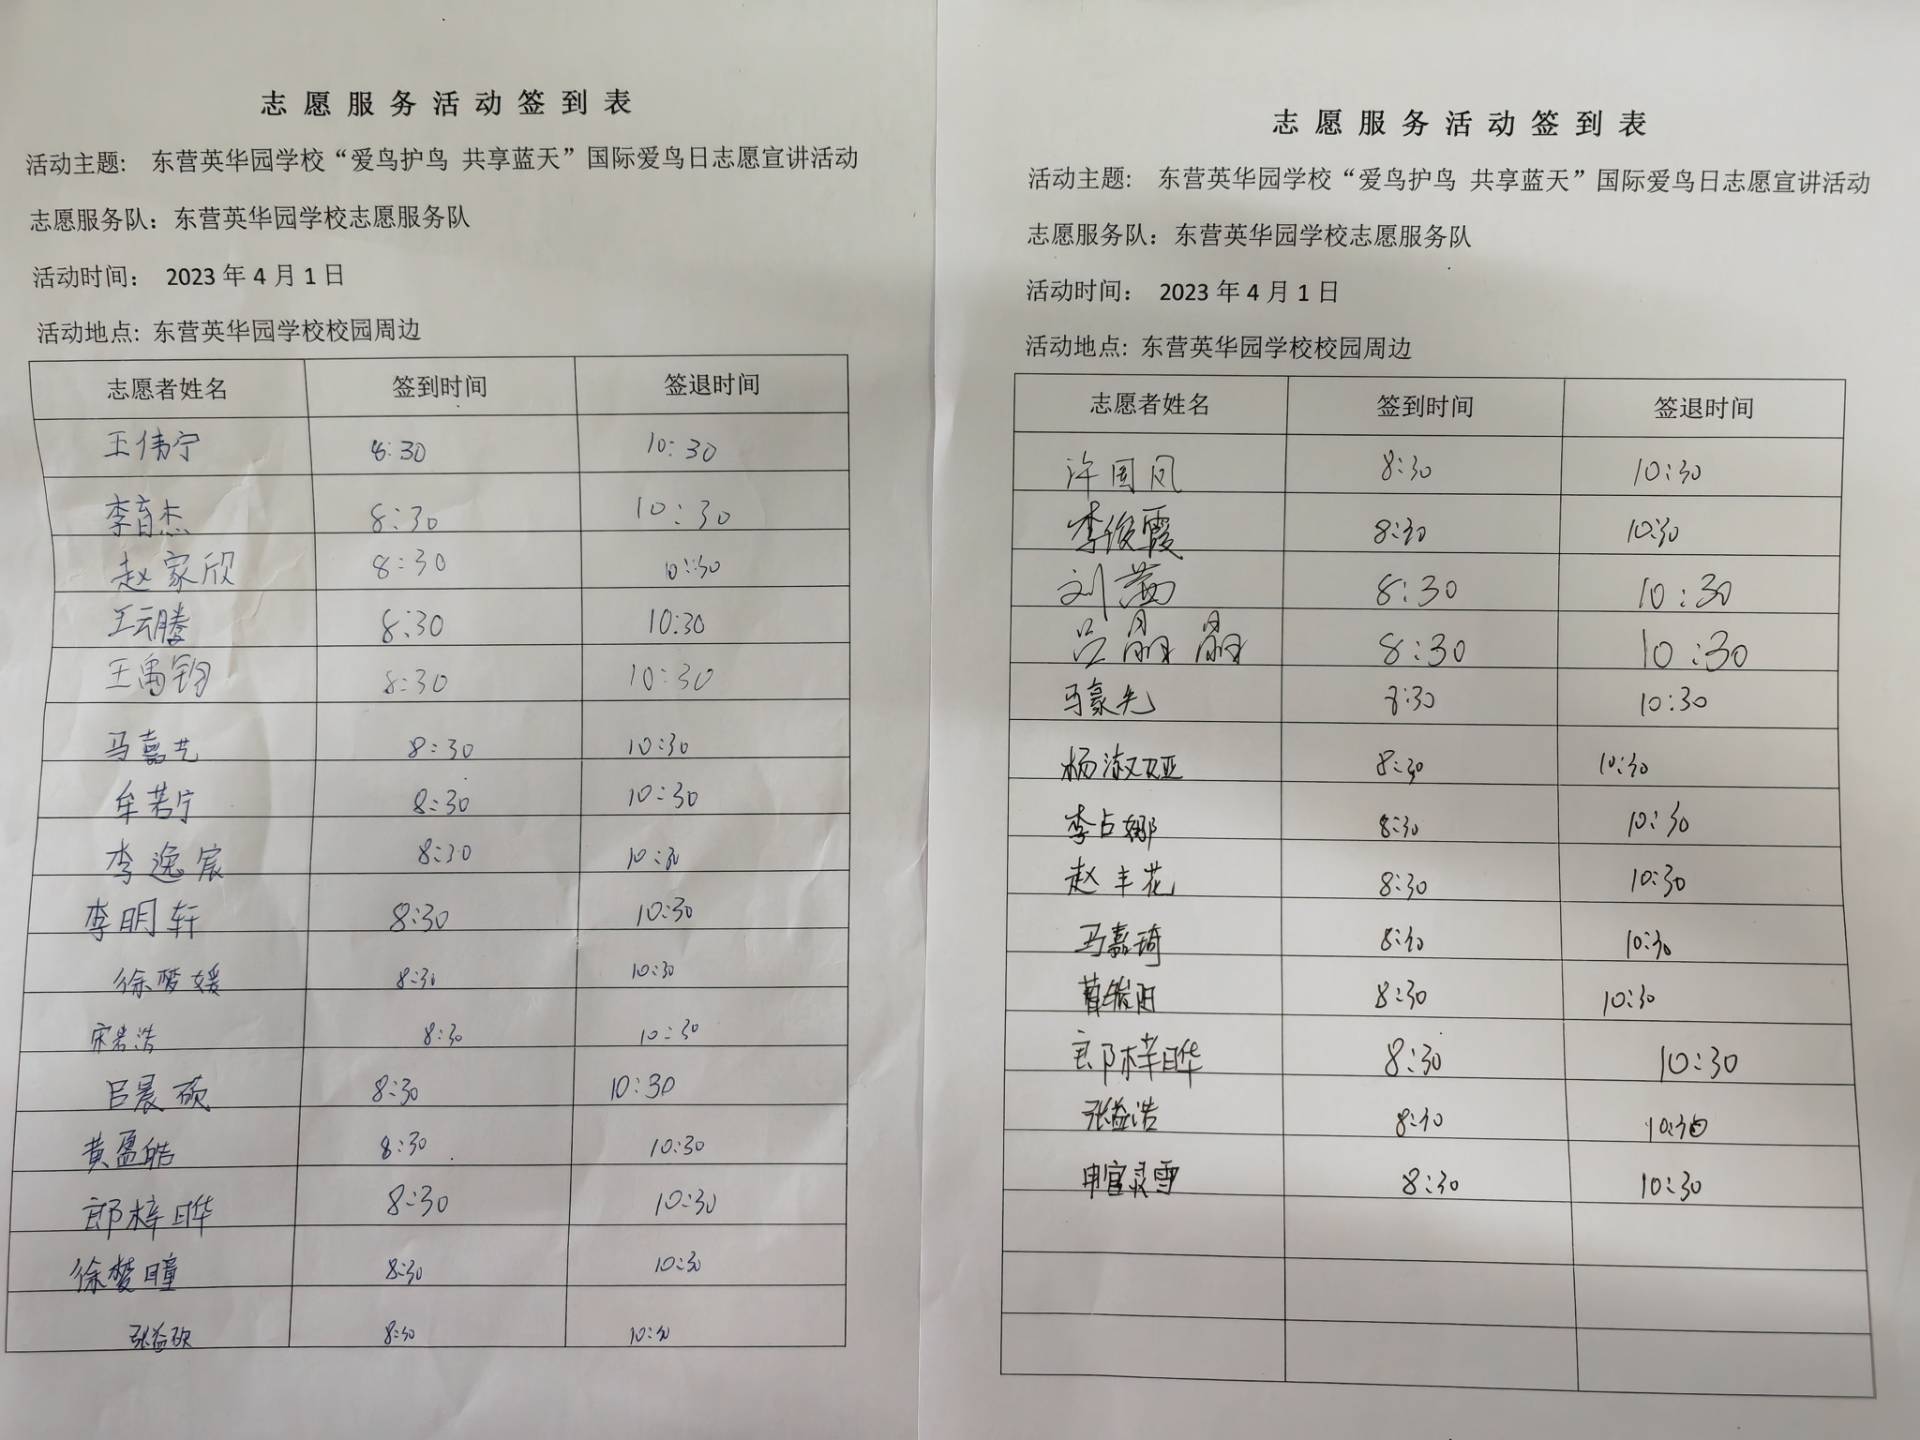 志愿服务活动签到表
活动主题: 东营英华园学校“爱鸟护鸟 共享蓝天”国际爱鸟日志愿宣讲活动
志愿服务队: 东营英华园学校志愿服务队
活动时间: 2023年4月1日
活动地点: 东营英华园学校校园周边
志愿者姓名 签到时间 签退时间
王伟宁 8:30 10:30
李育杰 8:30 10:30
赵家欣 8:30 10:30
王云腾 8:30 10:30
王禹钧 8:30 10:30
马嘉艺 8:30 10:30
牟若宁 8:30 10:30
李逸宸 8:30 10:30
李明轩 8:30 10:30
徐梦媛 8:30 10:30
宋若浩 8:30 10:30
吕晨硕 8:30 10:30
黄盈皓 8:30 10:30
郎梓晔 8:30 10:30
徐梦瞳 8:30 10:30
张益硕 8:30 10:30
志愿服务活动签到表
活动主题: 东营英华园学校“爱鸟护鸟 共享蓝天”国际爱鸟日志愿宣讲活动
志愿服务队: 东营英华园学校志愿服务队
活动时间: 2023年4月1日
活动地点: 东营英华园学校校园周边
志愿者姓名 签到时间 签退时间
许国凤 8:30 10:30
李俊霞 8:30 10:30
刘茜 8:30 10:30
吕晶晶 8:30 10:30
马豪先 8:30 10:30
杨淑娅 8:30 10:30
李占娜 8:30 10:30
赵丰花 8:30 10:30
马嘉琦 8:30 10:30
8:30 10:30
郎梓晔 8:30 10:30
张益浩 8:30 10:30
申官灵雪 8:30 10:30